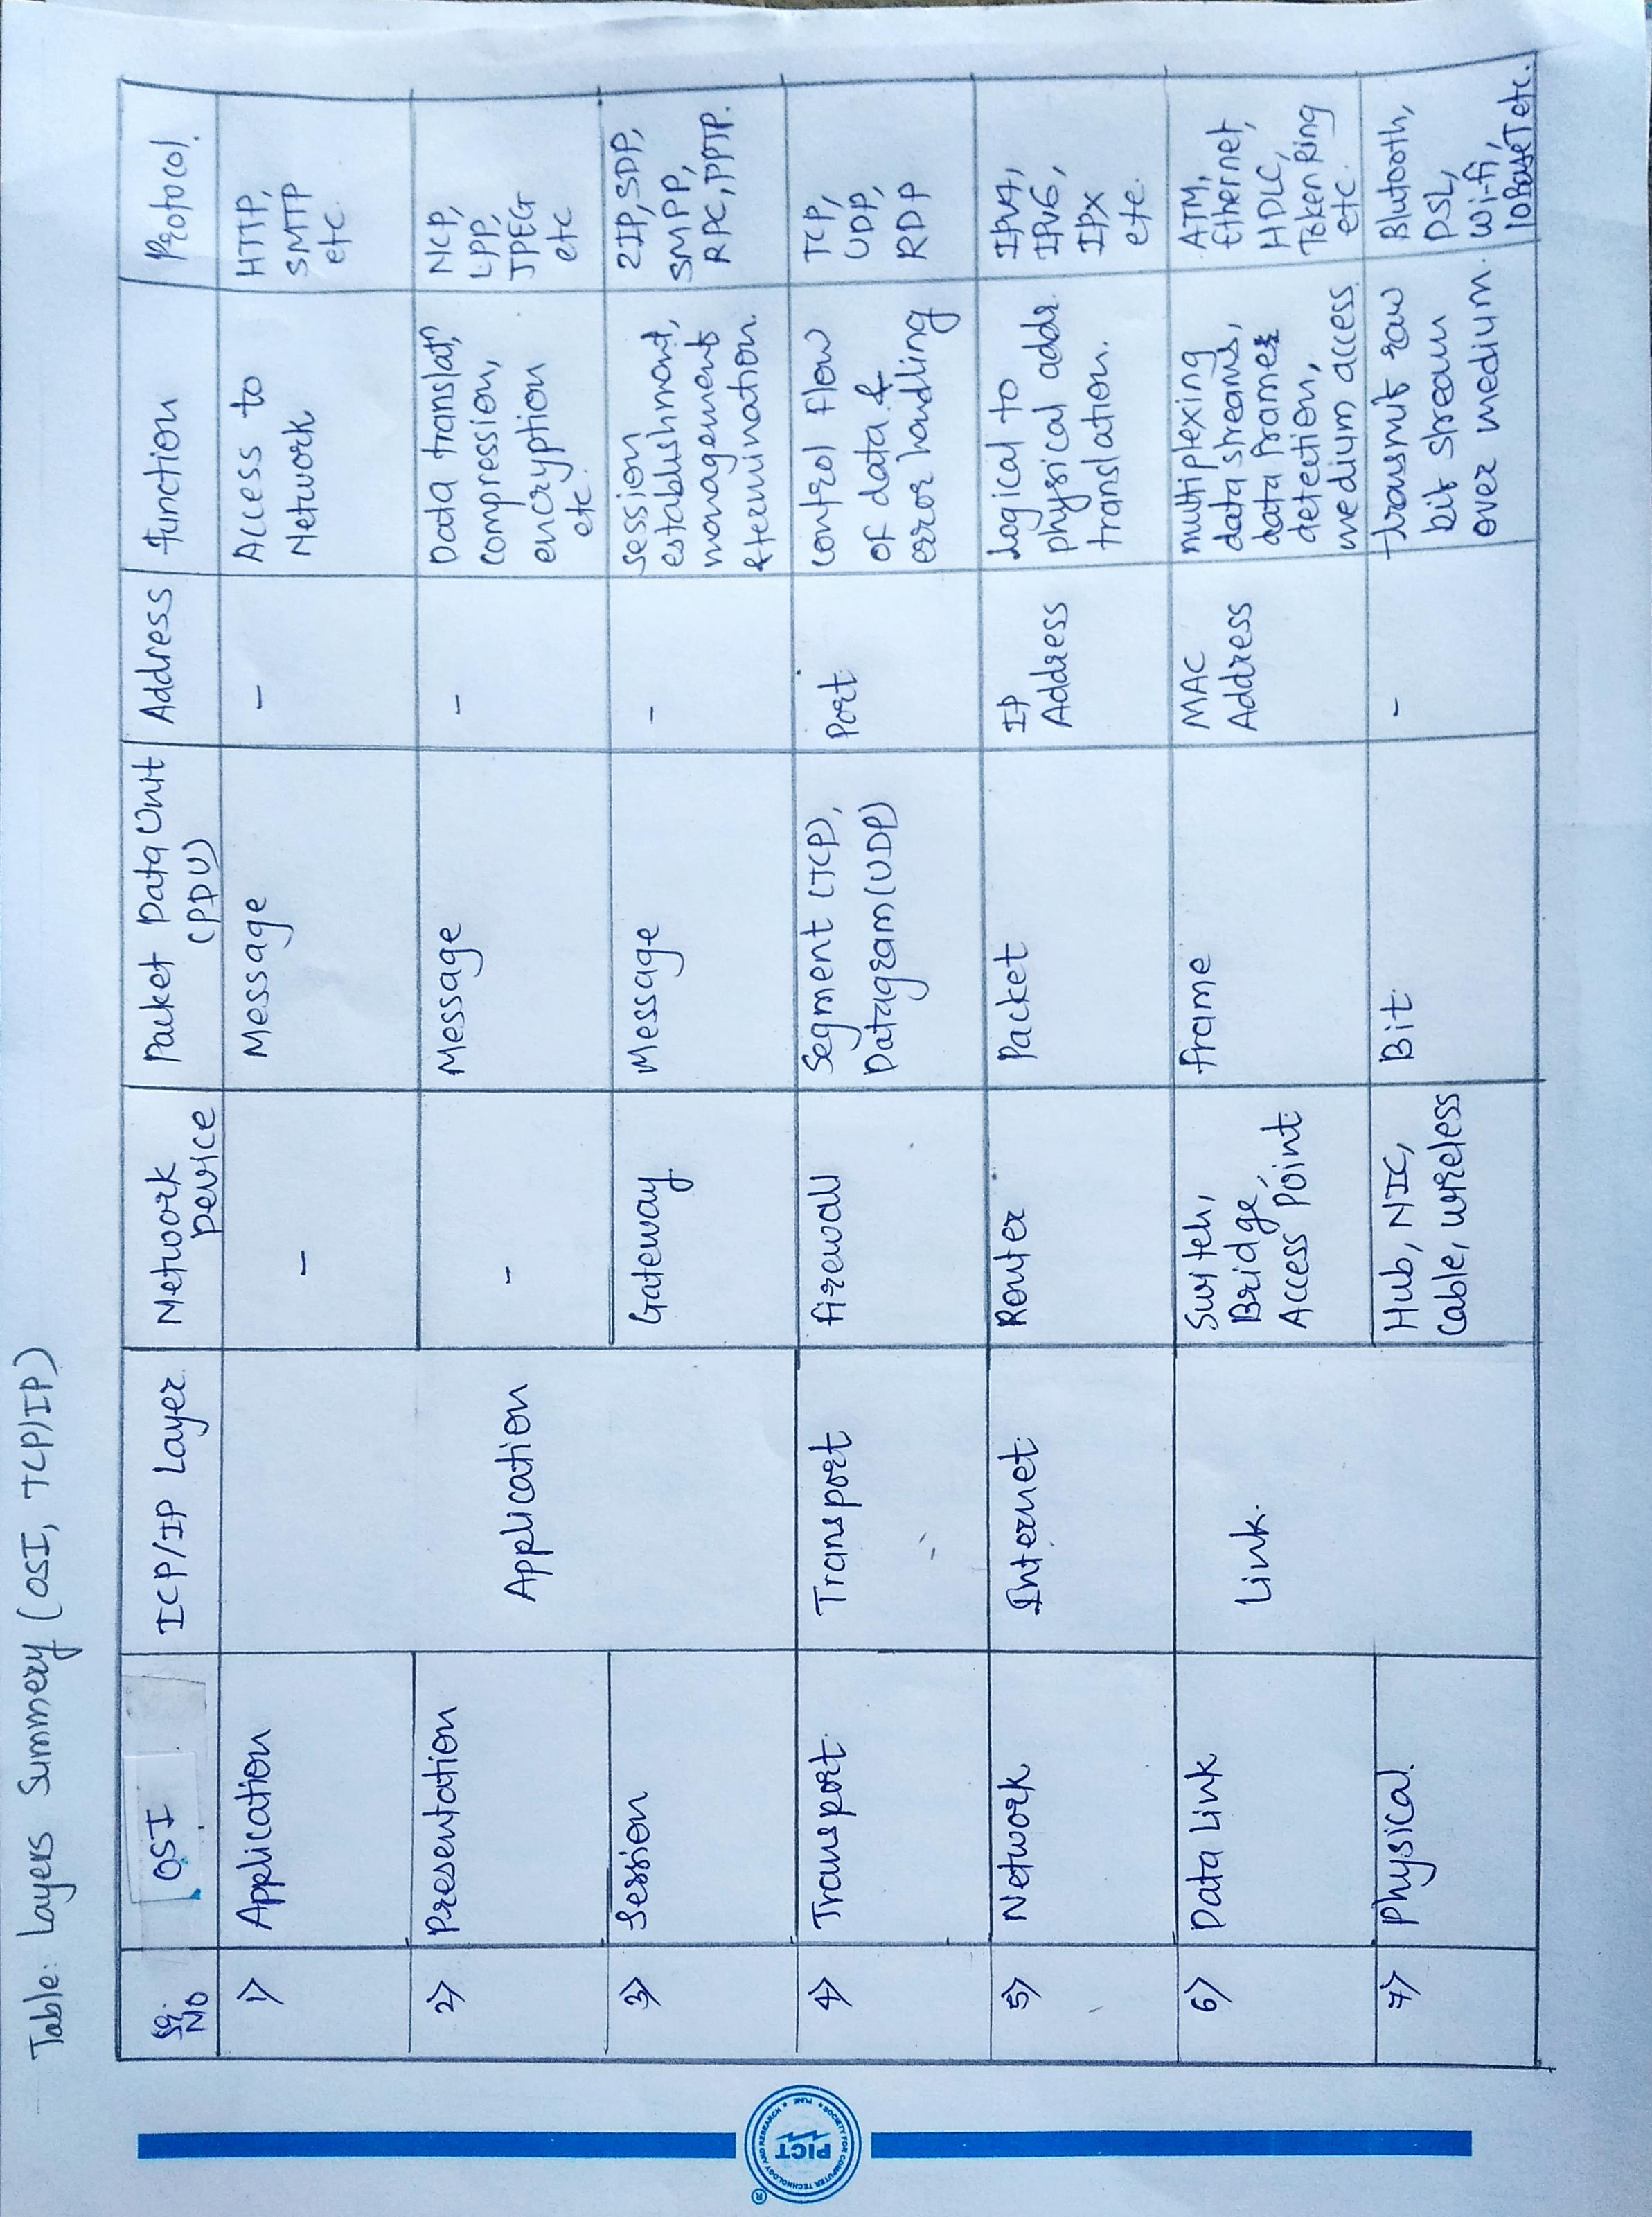 Table: Layers Summery (OSI, TCP/IP)
Sr. NO
OSI
ICP/IP Layer
Network Device
Packet Data Unit (PDU)
Address
function
Protocol.
1)
Application
Application
-
Message
-
Access to
Network
HTTP,
SMTP
etc.
2)
Presentation
-
Message
-
Data translatⁿ,
compression,
encryption
etc.
NCP,
LPP,
JPEG
etc
3)
Session
Gateway
Message
-
session
establishment,
management
& termination.
ZIP, SDP,
SMPP,
RPC, PPTP.
4)
Transport
Transport
firewall
Segment (TCP),
Datagram (UDP)
Port
control flow
of data &
error handling
TCP,
UDP,
RDP
5)
Network
Internet
Router
Packet
IP
Address
Logical to
physical addr.
translation.
IPv4,
IPv6,
IPX
etc.
6)
Data Link
Link.
Switch,
Bridge,
Access Point
frame
MAC
Address
multiplexing
data streams,
data frames
detection,
medium access
ATM,
Ethernet,
HDLC,
Token Ring
etc.
7)
Physical.
Hub, NIC,
Cable, wireless
Bit
-
transmit raw
bit stream
over medium.
Blutooth,
DSL,
Wi-fi,
10BaseT etc.
PICT
SOCIETY FOR COMPUTER TECHNOLOGY AND RESEARCH
PUNE
®